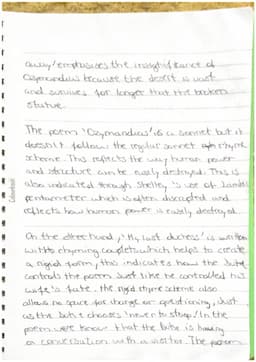 away' emphasises the insignificance of
Ozymandias because the desert is vast
and survives for longer than the broken
statue.
The poem 'Ozymandias' is a sonnet but it
doesn't follow the regular sonnet rhyme
scheme. This reflects the way human power
and structure can be easily destroyed. This is
also indicated through Shelley's use of Iambic
pentameter which is often disrupted and
reflects how human power is easily destroyed.
On the other hand, 'My last duchess' is written
with rhyming couplets which helps to create
a rigid form, this indicates how the Duke
controls the poem just like he controlled his
wife's fate. the rigid rhyme scheme also
allows no space for change or questioning, Just
as the Duke chooses 'never to stoop'. In the
poem we know that the Duke is having
a conversation with a visitor. The poem